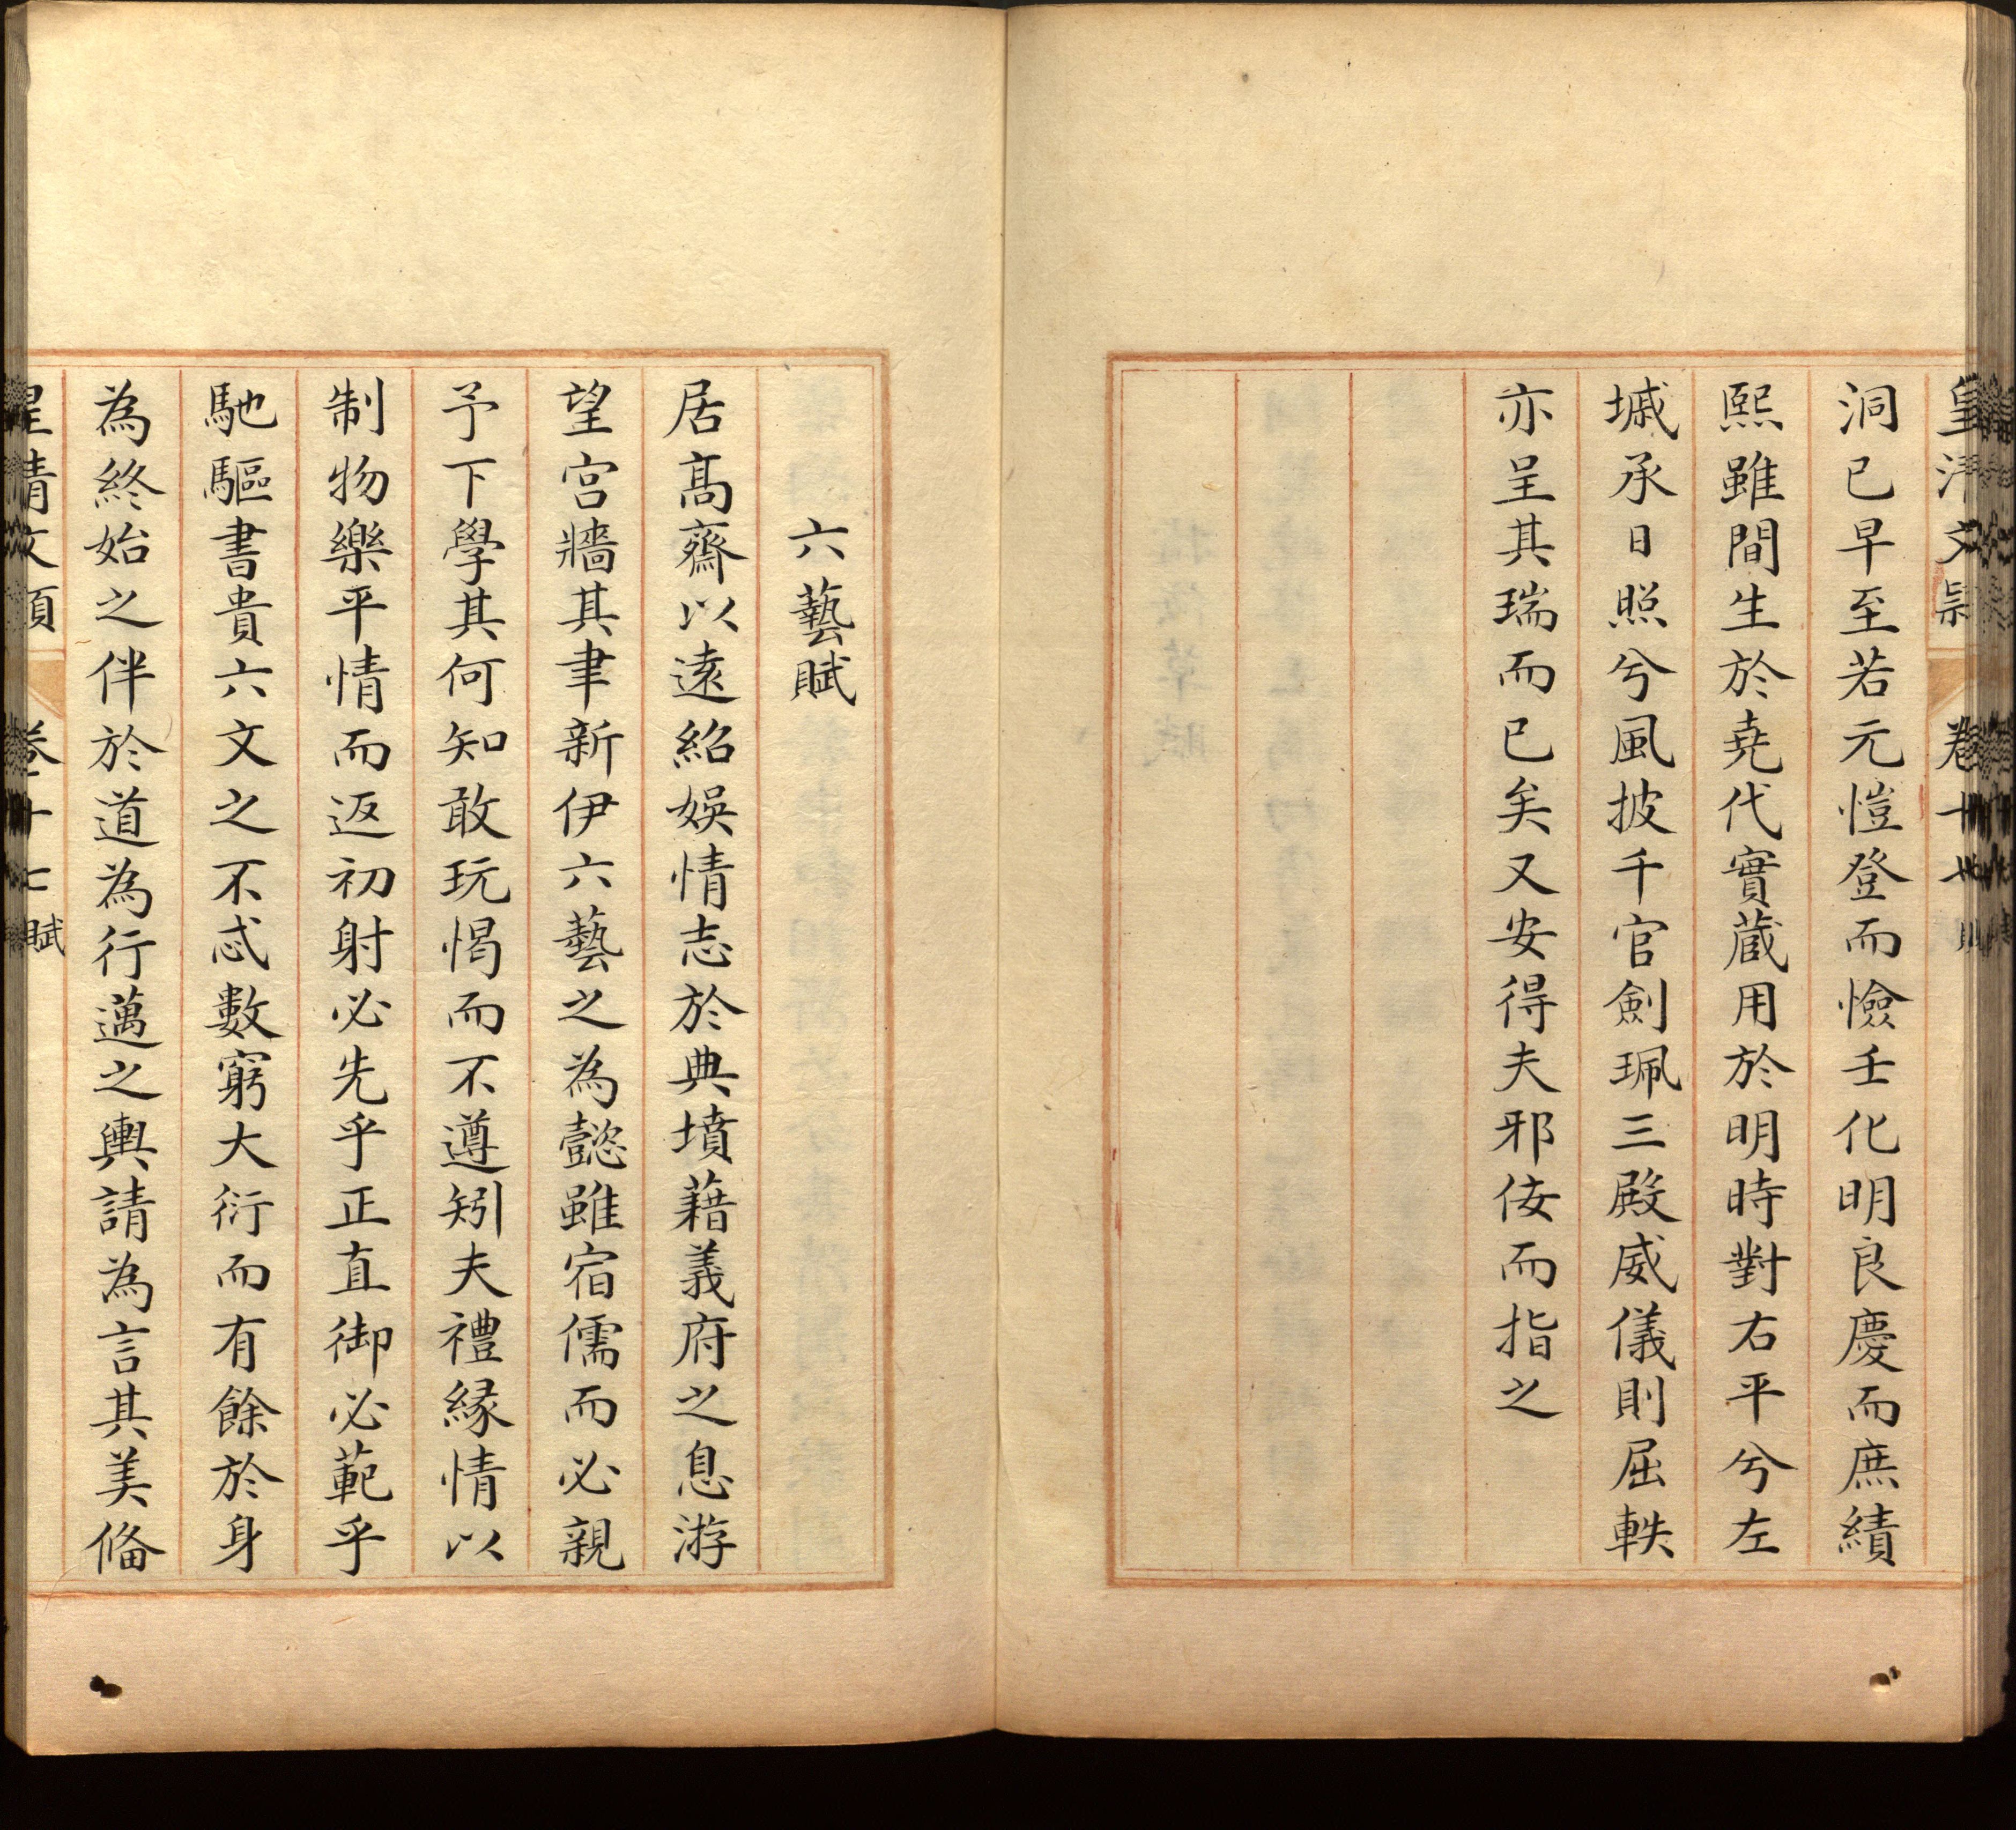 洞已早至若元愷登而憸壬化明良慶而庶績
熙雖間生於堯代實蔵用於明時對右平兮左
墄承日照兮風披千官劍珮三殿威儀則屈軼
亦呈其瑞而已矣又安得夫邪佞而指之
六藝賦
居髙齋以逺紹娛情志於典墳藉義府之息游
望宫牆其聿新伊六藝之為懿雖宿儒而必親
予下學其何知敢玩愒而不遵矧夫禮縁情以
制物樂平情而返初射必先乎正直御必範乎
馳驅書貴六文之不忒數窮大衍而有餘於身
為終始之伴於道為行邁之輿請為言其美俻
皇清文穎 卷十七 賦